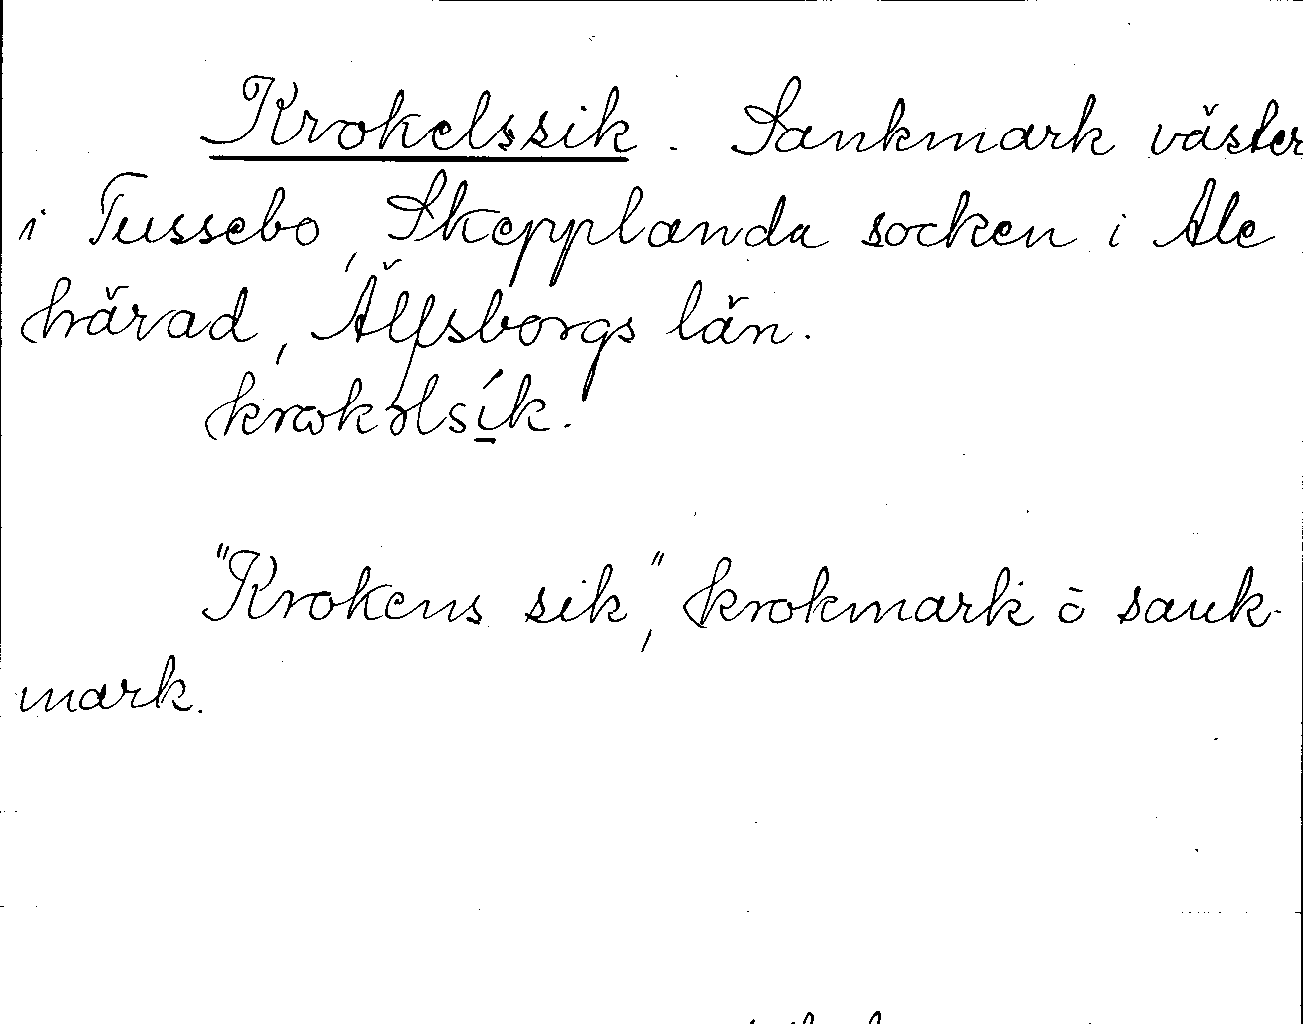 Krokelssik. Sankmark väster
i Tussebo, Skepplanda socken i Ale
härad, Älfsborgs län.
"Krokens sik", krokmark o sank-
mark.